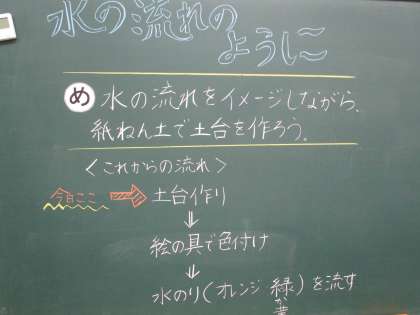 水の流れの
ように
め 水の流れをイメージしながら、
紙ねん土で土台を作ろう。
＜これからの流れ＞
今日ここ ⇒ 土台作り
⇓
絵の具で色付け
⇓
水のり(オレンジ 緑)を流す
か